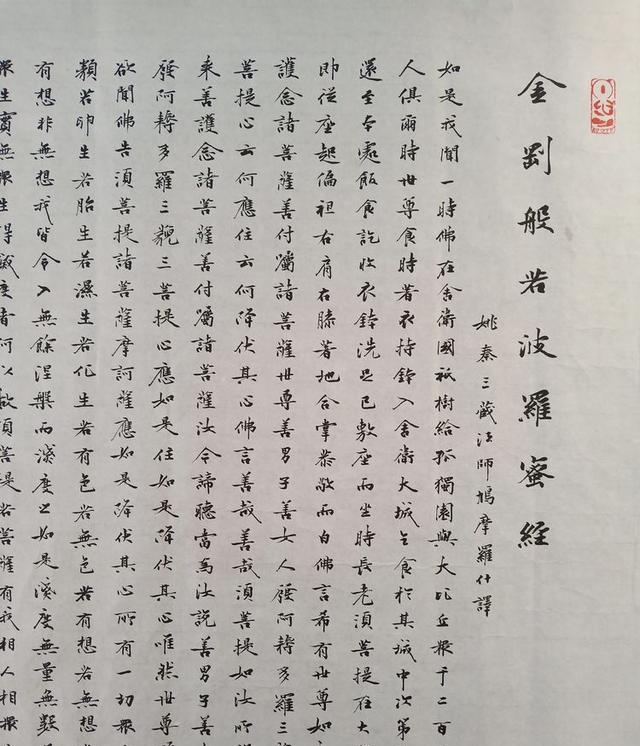 金剛般若波羅蜜經
姚秦三藏法師鳩摩羅什譯
如是我聞一時佛在舍衛國祇樹給孤獨園與大比丘眾千二百
人俱爾時世尊食時著衣持鉢入舍衛大城乞食於其城中次第
還至本處飯食訖收衣鉢洗足已敷座而坐時長老須菩提在大
即從座起偏袒右肩右膝著地合掌恭敬而白佛言希有世尊如
護念諸菩薩善付囑諸菩薩世尊善男子善女人發阿耨多羅三
菩提心云何應住云何降伏其心佛言善哉善哉須菩提如汝所
來善護念諸菩薩善付囑諸菩薩汝今諦聽當為汝說善男子善
發阿耨多羅三藐三菩提心應如是住如是降伏其心唯然世尊
欲聞佛告須菩提諸菩薩摩訶薩應如是降伏其心所有一切眾
類若卵生若胎生若濕生若化生若有色若無色若有想若無想
有想非無想我皆令入無餘涅槃而滅度之如是滅度無量無數
眾生實無眾生得滅度者何以故須菩提若菩薩有我相人相眾